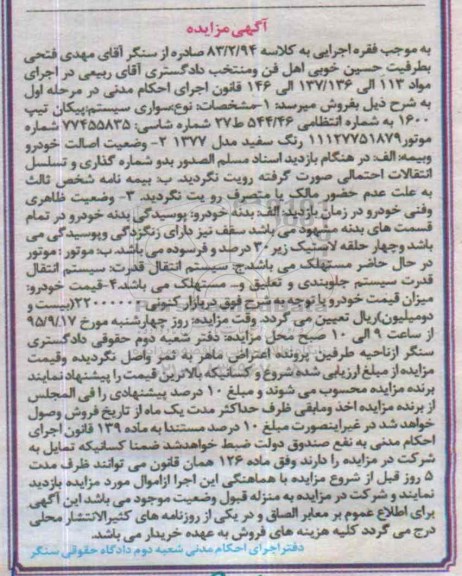 آگهی مزایده
به موجب فقره اجرایی به کلاسه ۸۳/۲/۹۴ صادره از سنگر آقای مهدی فتحی
بطرفیت حسین خوبی اهل فن ومنتخب دادگستری آقای ربیعی در اجرای
مواد ۱۱۳ الی ۱۳۷/۱۳۶ الی ۱۴۶ قانون اجرای احکام مدنی در مرحله اول
به شرح ذیل بفروش میرسد: ۱-مشخصات: نوع:سواری سیستم:پیکان تیپ
۱۶۰۰ به شماره انتظامی ۵۴۴/۴۶ ط۲۷ شماره شاسی: ۷۷۴۵۵۸۳۵ شماره
موتور۱۱۱۲۷۷۵۱۸۷۹ رنگ سفید مدل ۱۳۷۷ ۲- وضعیت اصالت خودرو
وبیمه: الف: در هنگام بازدید اسناد مسلم الصدور بدو شماره گذاری و تسلسل
انتقالات احتمالی صورت گرفته رویت نگردید. ب: بیمه نامه شخص ثالث
به علت عدم حضور مالک یا متصرف رو یت نگردید. ۳- وضعیت ظاهری
وفنی خودرو در زمان بازدید: الف: بدنه خودرو: پوسیدگی بدنه خودرو در تمام
قسمت های بدنه مشهود می باشد سقف نیز دارای زنگزدگی وپوسیدگی می
باشد وچهار حلقه لاستیک زیر ۳۰ درصد و فرسوده می باشد. ب: موتور: موتور
در حال حاضر مستهلک می باشد.ج: سیستم انتقال قدرت: سیستم انتقال
قدرت سیستم جلوبندی و تعلیق و... مستهلک می باشد.۴-قیمت خودرو:
میزان قیمت خودرو با توجه به شرح فوق دربازار کنونی ۲۲۰۰۰۰۰۰(بیست و
دومیلیون)ریال تعیین می گردد. وقت مزایده: روز چهارشنبه مورخ ۹۵/۹/۱۷
از ساعت ۹ الی ۱۰ صبح محل مزایده: دفتر شعبه دوم حقوقی دادگستری
سنگر ازناحیه طرفین پرونده اعتراض ماهر به تمر واصل نگردیده وقیمت
مزایده از مبلغ ارزیابی شده شروع و کسانیکه بالاترین قیمت را پیشنهاد نمایند
برنده مزایده محسوب می شوند و مبلغ ۱۰ درصد پیشنهادی را فی المجلس
از برنده مزایده اخذ ومابقی ظرف حداکثر مدت یک ماه از تاریخ فروش وصول
خواهد شد در غیراینصورت مبلغ ۱۰ درصد مستندا به ماده ۱۳۹ قانون اجرای
احکام مدنی به نفع صندوق دولت ضبط خواهدشد ضمنا کسانیکه تمایل به
شرکت در مزایده را دارند وفق ماده ۱۲۶ همان قانون می توانند ظرف مدت
۵ روز قبل از شروع مزایده با هماهنگی این اجرا ازاموال مورد مزایده بازدید
نمایند و شرکت در مزایده به منزله قبول وضعیت موجود می باشد این آگهی
برای اطلاع عموم بر معابر الصاق و در یکی از روزنامه های کثیرالانتشار محلی
درج می گردد کلیه هزینه های فروش به عهده خریدار می باشد.
دفتراجرای احکام مدنی شعبه دوم دادگاه حقوقی سنگر